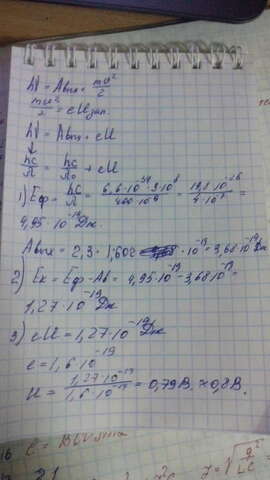 hν = Aвых + mv²/2
mv²/2 = eUзап.
hν = Aвых + eU
↓
hc/λ = hc/λ₀ + eU
1) Eф = hc/λ = 6,6·10⁻³⁴·3·10⁸/400·10⁻⁹ = 19,8·10⁻²⁶/4·10⁻⁷ =
4,95·10⁻¹⁹ Дж.
Aвых = 2,3·1,602·10⁻¹⁹ = 3,68·10⁻¹⁹ Дж
2) Eк = Eф - Aв = 4,95·10⁻¹⁹ - 3,68·10⁻¹⁹ =
1,27·10⁻¹⁹ Дж
3) eU = 1,27·10⁻¹⁹ Дж
e = 1,6·10⁻¹⁹
U = 1,27·10⁻¹⁹/1,6·10⁻¹⁹ = 0,79 В. ≈ 0,8 В.